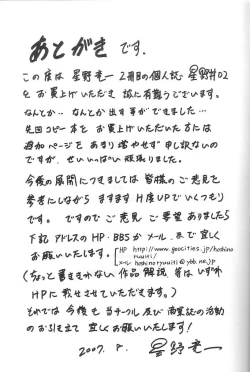 あとがき です.
この度は 星野竜一 2冊目の個人誌 星野丼02
を お買上げいただき 誠に有難うございます。
なんとか‥ なんとか出す事ができました…
先回コピー本を お買上げいただいた方には
追加ページを あまり増やせず 申し訳ないの
ですが、せいいっぱい頑張りました。
今後の展開につきましては 皆様のご意見を
参考にしながら ますます H度UPでいくつもり
です。 ですので ご意見 ご希望 ありましたら
下記アドレスのHP・BBSか メールまで 宜しく
お願いいたします。
HP http://www.geocities.jp/hoshino
ryuuiti/
メール hoshinoryuuiti@ybb.ne.jp
(ちょっと書ききれない 作品解説 等は いずれ
HPに載せさせていただきます。)
それでは 今後も 当サークル 及び 商業誌の活動
のお引立て 宜しくお願いいたします!
2007. 8. 星野竜一